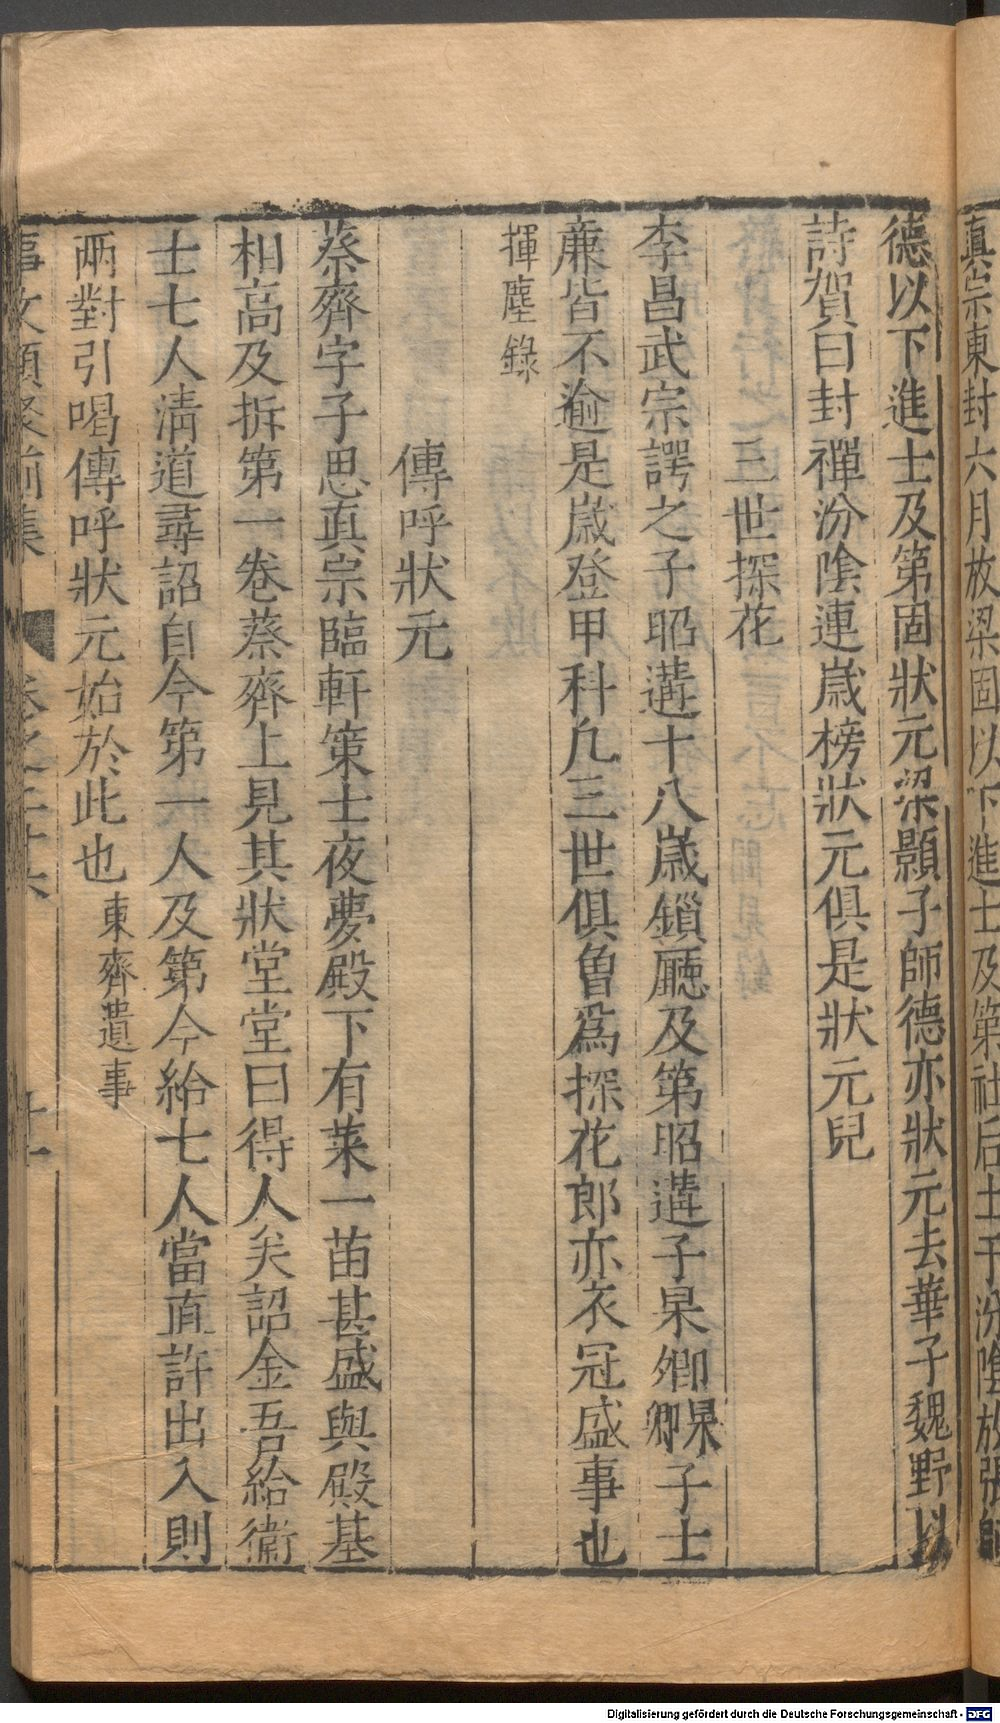 真宗東封六月放梁固以下進士及第祀后土于汾陰放張師
德以下進士及第固狀元梁顥子師德亦狀元去華子魏野以
詩賀曰封禪汾隂連嵗榜狀元俱是狀元兒
三世探花
李昌武宗諤之子昭遘十八嵗鎻廳及第昭遘子杲卿杲卿子士
亷皆不逾是嵗登甲科凢三世俱曾爲探花郎亦衣冠盛事也
揮塵錄
傳呼狀元
蔡齊字子思真宗臨軒策士夜夢殿下有菜一苗甚盛與殿基
相高及拆第一卷蔡齊上見其狀堂堂曰得人矣詔金吾給衛
士七人清道尋詔自今第一人及第今給七人當直許出入則
兩對引喝傳呼狀元始於此也 東齊遺事
事文類聚前集 卷之二十六 十一
Digitalisierung gefördert durch die Deutsche Forschungsgemeinschaft - DFG